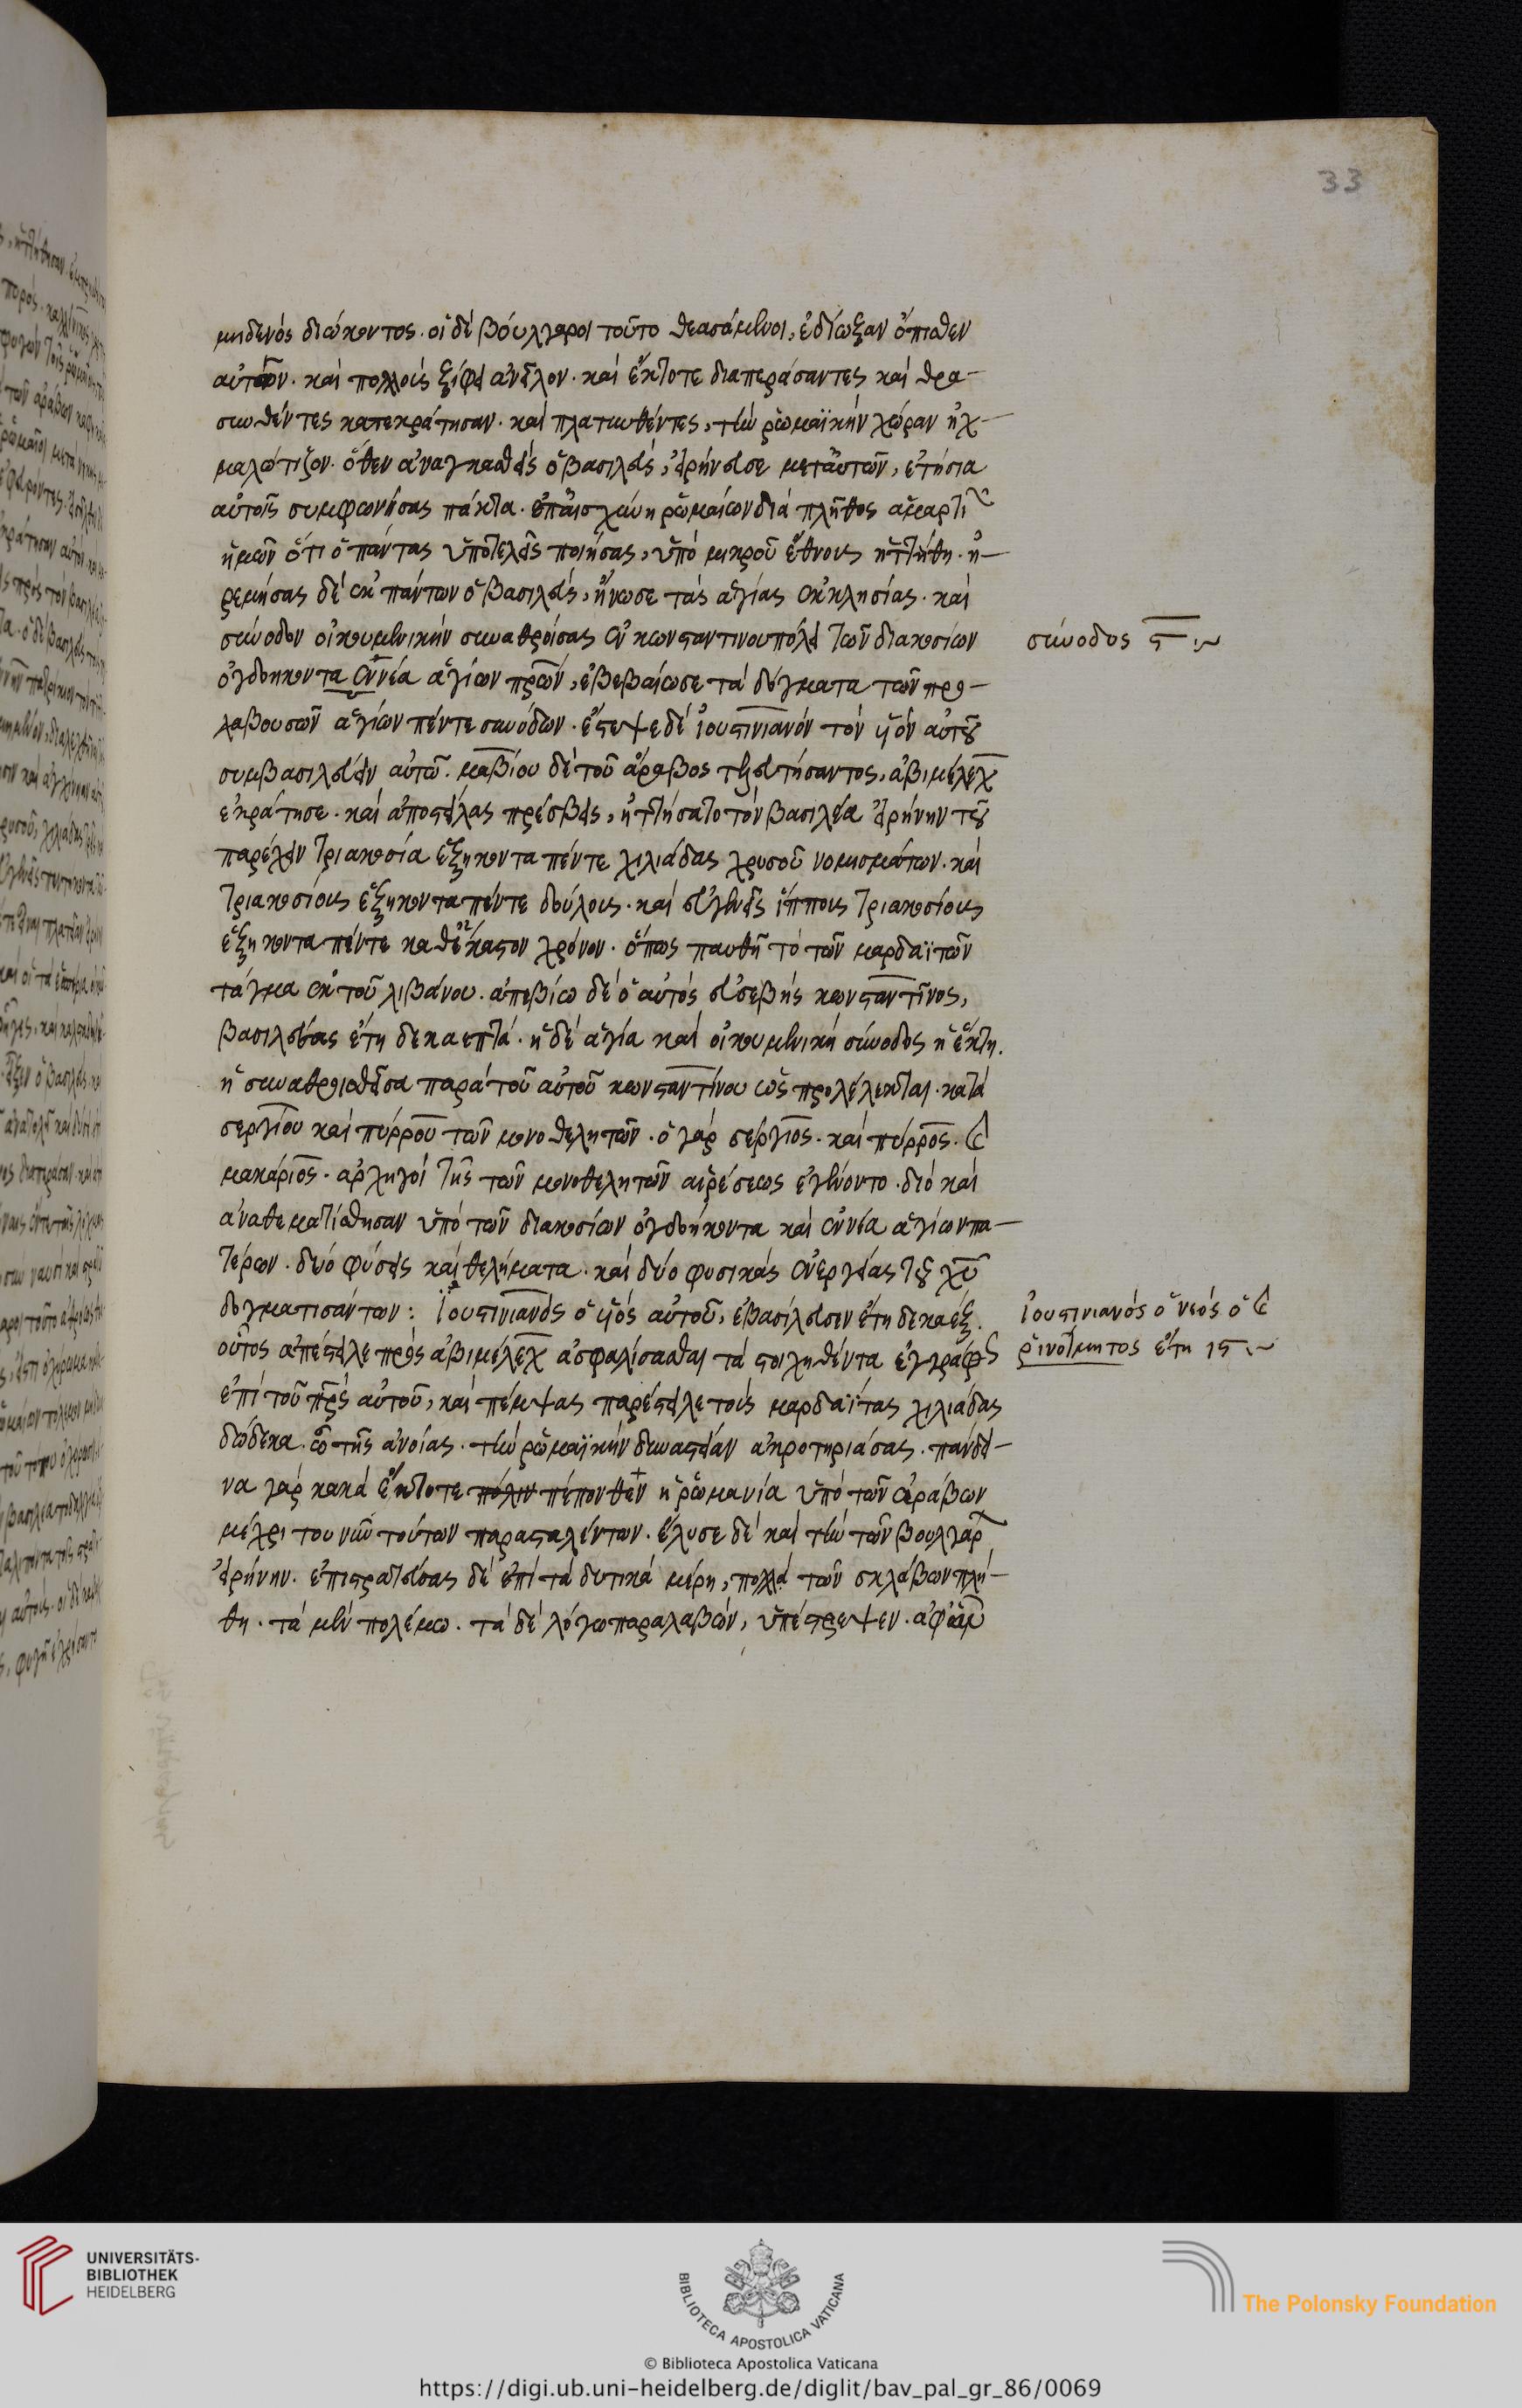 33
μηδενὸς διώκοντος. οἱ δὲ βούλγαροι τοῦτο θεασάμενοι, ἐδίωξαν ὄπισθεν
αὐτῶν. καὶ πολλοὺς ξίφει ἀνεῖλον. καὶ ἔκτοτε διαπεράσαντες καὶ θρα-
συνθέντες κατεκράτησαν. καὶ πλατυνθέντες, τὴν ῥωμαϊκὴν χώραν ἠχ-
μαλώτιζον. ὅθεν ἀναγκασθεὶς ὁ βασιλεὺς, εἰρήνευσε μετ' αὐτῶν, ἐτήσια
αὐτοῖς συμφωνήσας πάκτα. ἐπ' αἰσχύνη ῥωμαίων διὰ πλῆθος ἁμαρτι
ἡμῶν ὅτι ὁ πάντας ὑποτελεῖς ποιήσας, ὑπὸ μικροῦ ἔθνους ἡττήθη. ἠ-
ρεμήσας δὲ ἐκ πάντων ὁ βασιλεὺς, ἥνωσε τὰς ἁγίας ἐκκλησίας. καὶ
σύνοδον οἰκουμενικὴν συναθροίσας ἐν κωνσταντινουπόλει τῶν διακοσίων
ὀγδοηκοντα ἐννέα ἁγίων πρων, ἐβεβαίωσε τὰ δόγματα τῶν προ-
λαβουσῶν ἁγίων πέντε συνόδων. ἔστεψε δὲ ἰουστινιανὸν τὸν υἱὸν αὐτοῦ
συμβασιλεύειν αὐτῶ. μαβίου δὲ τοῦ ἄραβος τελευτήσαντος, ἀβιμέλεχ
ἐκράτησε. καὶ ἀποστείλας πρέσβεις, ἠτήσατο τὸν βασιλέα εἰρήνην τοῦ
παρέχειν τριακοσία ἑξηκοντα πέντε χιλιάδας χρυσοῦ νομισμάτων. καὶ
τριακοσίους ἑξηκοντα πέντε δούλους. καὶ εὐγενεῖς ἵππους τριακοσίους
ἑξηκοντα πέντε καθ' ἕκαστον χρόνον. ὅπως παυθῆ τὸ τῶν μαρδαϊτῶν
τάγμα ἐκ τοῦ λιβάνου. ἀπεβίω δὲ ὁ αὐτὸς εὐσεβὴς κωνσταντῖνος,
βασιλεύσας ἔτη δεκαεπτά. ἡ δὲ ἁγία καὶ οἰκουμενικὴ σύνοδος ἡ ἕκτη.
ἡ συναθροισθεῖσα παρὰ τοῦ αὐτοῦ κωνσταντίνου ὡς προλέλεκται. κατὰ
σεργίου καὶ πύρρου τῶν μονοθελητῶν. ὁ γὰρ σέργιος. καὶ πύρρος. καὶ
μακάριος. ἀρχηγοὶ τῆς τῶν μονοθελητῶν αἱρέσεως ἐγένοντο. διὸ καὶ
ἀναθεματίσθησαν ὑπὸ τῶν διακοσίων ὀγδοήκοντα καὶ ἐννέα ἁγίων πα-
τέρων. δύο φύσεις καὶ θελήματα. καὶ δύο φυσικὰς ἐνεργείας τοῦ χυ
δογματισάντων: ἰουστινιανὸς ὁ υἱὸς αὐτοῦ, ἐβασίλευσεν ἔτη δεκαέξ.
οὗτος ἀπέστειλε πρὸς ἀβιμέλεχ ἀσφαλίσασθαι τὰ στοιχηθέντα ἐγγράφως
ἐπὶ τοῦ πρς αὐτοῦ, καὶ πέμψας παρέστειλε τοὺς μαρδαΐτας χιλιάδας
δώδεκα. ὢ τῆς ἀνοίας. τὴν ῥωμαϊκὴν δυναστείαν ἀκροτηριάσας. πάνδει-
να γὰρ κακὰ ἔκτοτε πόλιν πέπονθεν ἡ ῥωμανία ὑπὸ τῶν ἀράβων
μέχρι του νῦν τούτων παρασταλέντων. ἔλυσε δὲ καὶ τὴν τῶν βουλγάρ
εἰρήνην. ἐπιστρατεύσας δὲ ἐπὶ τὰ δυτικὰ μέρη, πολλὰ τῶν σκλάβων πλή-
θη. τὰ μὲν πολέμω. τὰ δὲ λόγω παραλαβὼν, ὑπέστρεψεν. ἀφ' ὧν
σύνοδος ϛ
ἰουστινιανὸς ὁ νεὸς ὁ καὶ
ῥινότμητος ἔτη ιϛ
UNIVERSITÄTS-
BIBLIOTHEK
HEIDELBERG
BIBLIOTECA APOSTOLICA VATICANA
© Biblioteca Apostolica Vaticana
The Polonsky Foundation
https://digi.ub.uni-heidelberg.de/diglit/bav_pal_gr_86/0069